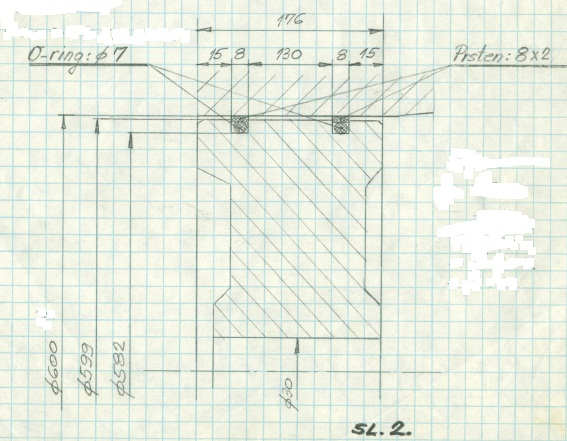 176
O-ring: φ7
15 8 130 8 15
Prsten: 8x2
φ600
φ599
φ582
φ30
SL. 2.